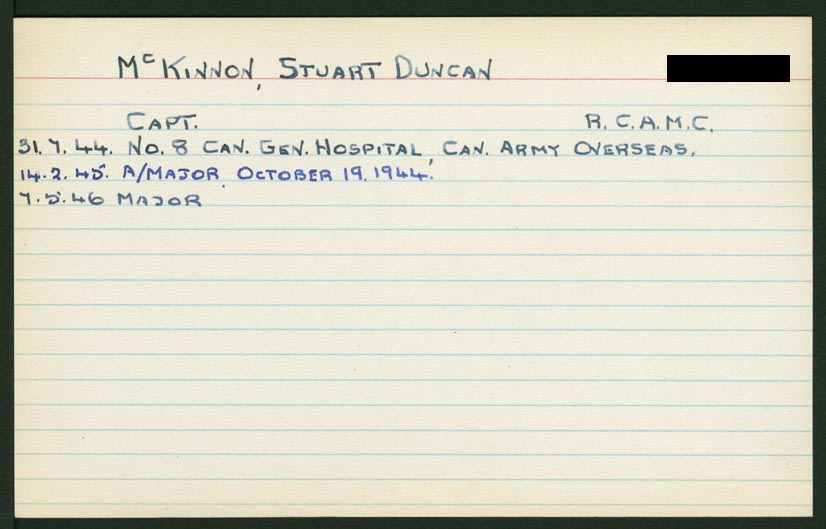 McKINNON, STUART DUNCAN
CAPT. R.C.A.M.C.
31.7.44. NO. 8 CAN. GEN. HOSPITAL, CAN. ARMY OVERSEAS.
14.2.45. A/MAJOR, OCTOBER 19, 1944.
7.5.46 MAJOR